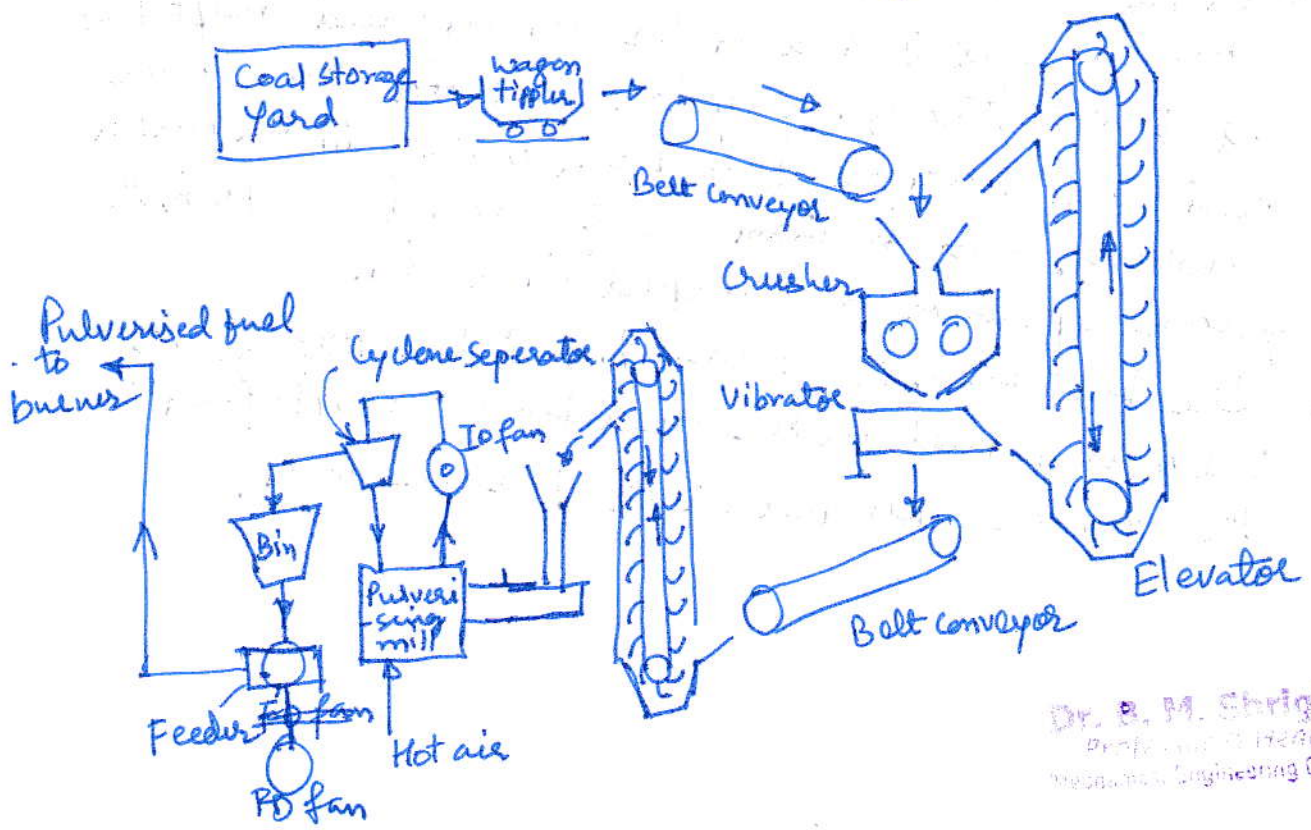 Coal storage
Yard
wagon
tippler
Belt conveyor
Crusher
Vibrator
Elevator
Belt conveyor
Pulverised fuel
to
burner
Cyclone seperator
ID fan
Bin
Pulveri
sing
mill
Feeder
fan
FD fan
Hot air
Dr. B. M.
Mechanical Engineering